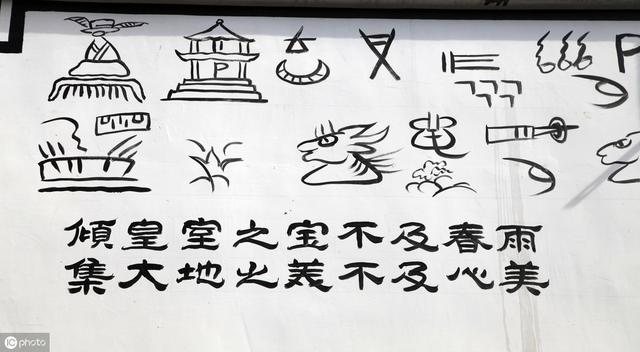 傾皇室之宝不及春雨
集大地之羙不及心美
iC photo